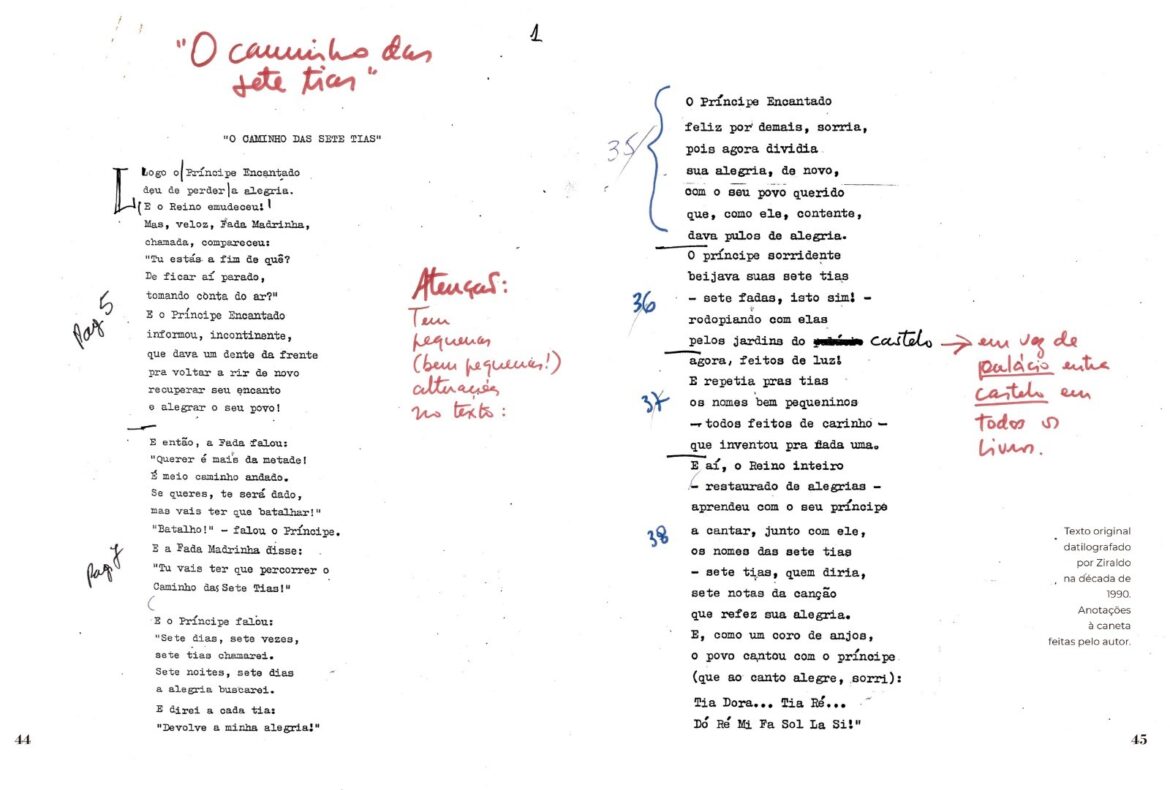 1
"O caminho das
sete tias"
"O CAMINHO DAS SETE TIAS"
Logo o Príncipe Encantado
deu de perder a alegria.
E o Reino emudeceu!
Mas, veloz, Fada Madrinha,
chamada, compareceu:
"Tu estás a fim de quê?
De ficar aí parado,
tomando conta do ar?"
E o Príncipe Encantado
informou, incontinente,
que dava um dente da frente
pra voltar a rir de novo
recuperar seu encanto
e alegrar o seu povo!
Pag 5
E então, a Fada falou:
"Querer é mais da metade!
É meio caminho andado.
Se queres, te será dado,
mas vais ter que batalhar!"
"Batalho!" - falou o Príncipe.
E a Fada Madrinha disse:
"Tu vais ter que percorrer o
Caminho das Sete Tias!"
Pag 7
E o Príncipe falou:
"Sete dias, sete vezes,
sete tias chamarei.
Sete noites, sete dias
a alegria buscarei.
E direi a cada tia:
"Devolve a minha alegria!"
Atenção:
Tem
pequenas
(bem pequenas!)
alterações
no texto:
44
35
O Príncipe Encantado
feliz por demais, sorria,
pois agora dividia
sua alegria, de novo,
com o seu povo querido
que, como ele, contente,
dava pulos de alegria.
36
O príncipe sorridente
beijava suas sete tias
- sete fadas, isto sim! -
rodopiando com elas
pelos jardins do castelo
agora, feitos de luz!
em vez de
palácio entra
castelo em
todos os
livros.
37
E repetia pras tias
os nomes bem pequeninos
- todos feitos de carinho -
que inventou pra cada uma.
E aí, o Reino inteiro
- restaurado de alegrias -
aprendeu com o seu príncipe
38
a cantar, junto com ele,
os nomes das sete tias
- sete tias, quem diria,
sete notas da canção
que refez sua alegria.
E, como um coro de anjos,
o povo cantou com o príncipe
(que ao canto alegre, sorri):
Tia Dora... Tia Ré...
Dó Ré Mi Fa Sol La Si!"
Texto original
datilografado
por Ziraldo
na década de
1990.
Anotações
à caneta
feitas pelo autor.
45